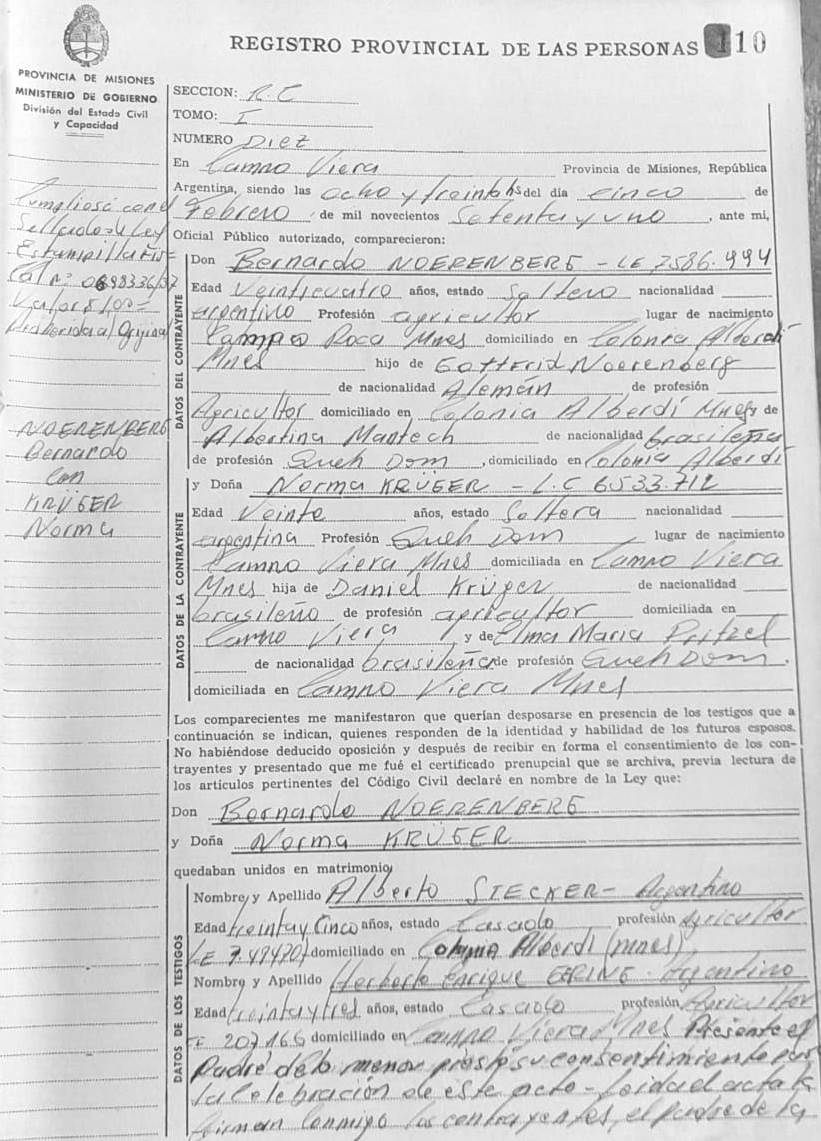 REGISTRO PROVINCIAL DE LAS PERSONAS 110
PROVINCIA DE MISIONES
MINISTERIO DE GOBIERNO
División del Estado Civil
y Capacidad
Cumpliose con el
Sellado de Ley
Estampilla Fis=
cal nº 0698336/37
Valor $ 1,00=
Adherida al Original
NOERENBERG
Bernardo
Con
KRÜGER
Norma
SECCION: R.C
TOMO: I
NUMERO Diez
En Campo Viera Provincia de Misiones, República
Argentina, siendo las ocho y treinta hs del día cinco de
Febrero, de mil novecientos Setenta y uno, ante mi,
Oficial Público autorizado, comparecieron:
DATOS DEL CONTRAYENTE
Don Bernardo NOERENBERG - LE 7586.994
Edad Veinticuatro años, estado Soltero nacionalidad
argentino Profesión agricultor lugar de nacimiento
Campo Roca Mnes domiciliado en Colonia Alberdi
Mnes hijo de Gottfrid Noerenberg
de nacionalidad Alemán de profesión
Agricultor domiciliado en Colonia Alberdí Mnes y de
Albertina Mantech de nacionalidad brasileña
de profesión Queh Dom, domiciliado en Colonia Alberdi
DATOS DE LA CONTRAYENTE
y Doña Norma KRÜGER - L.C 6533.712
Edad Veinte años, estado Soltera nacionalidad
argentina Profesión Queh Dom lugar de nacimiento
Campo Viera Mnes domiciliada en Campo Viera
Mnes hija de Daniel Krüger de nacionalidad
brasileño de profesión agricultor domiciliada en
Campo Viera y de Elma Maria Pritzel
de nacionalidad brasileña de profesión Queh Dom.
domiciliada en Campo Viera Mnes
Los comparecientes me manifestaron que querían desposarse en presencia de los testigos que a
continuación se indican, quienes responden de la identidad y habilidad de los futuros esposos.
No habiéndose deducido oposición y después de recibir en forma el consentimiento de los con-
trayentes y presentado que me fué el certificado prenupcial que se archiva, previa lectura de
los artículos pertinentes del Código Civil declaré en nombre de la Ley que:
Don Bernardo NOERENBERG
y Doña Norma KRÜGER
quedaban unidos en matrimonio
DATOS DE LOS TESTIGOS
Nombre y Apellido Alberto STECKER - Argentino
Edad treinta y Cinco años, estado Casado profesión Agricultor
LE domiciliado en Colonia Alberdi (Mnes)
Nombre y Apellido Herberto Enrique - Argentino
Edad treinta y tres años, estado Casado profesión Agricultor
207166 domiciliado en Campo Viera Mnes Presente el
Padre de la menor prestó su consentimiento para
la celebración de este acto - leida el acta la
firman conmigo los contrayentes, el padre de la